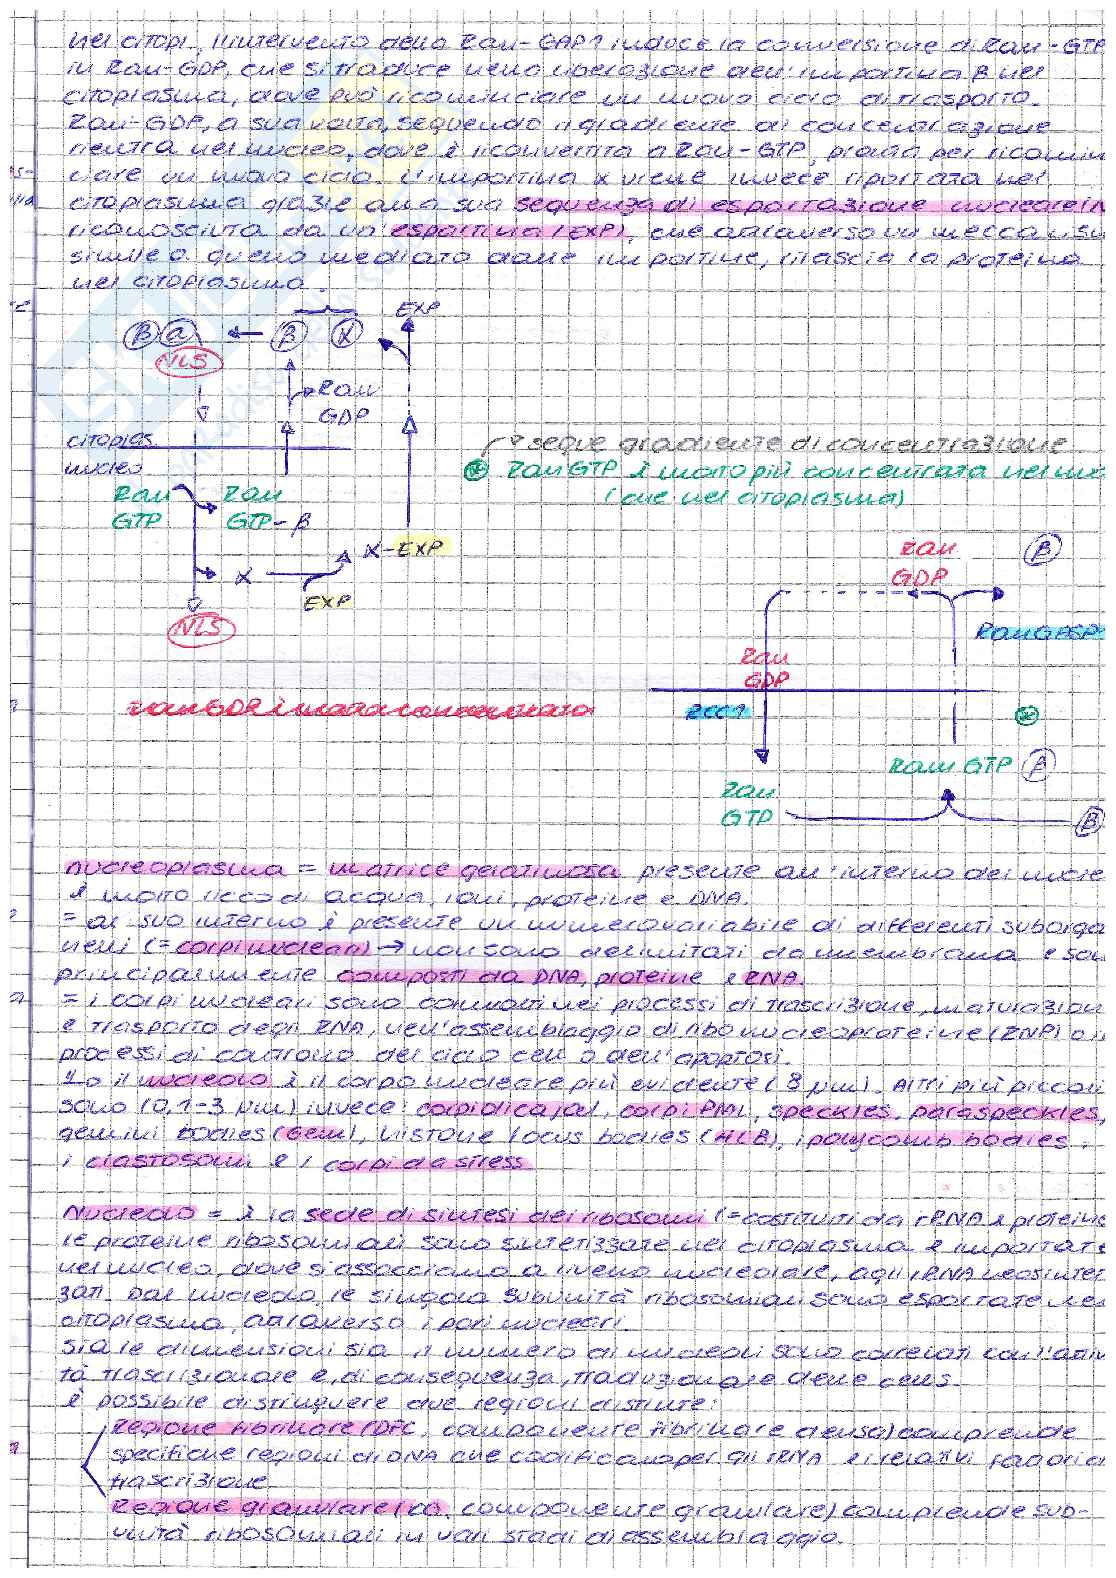 nel citopl, l'intervento della Ran-GAP1 induce la conversione di Ran-GTP
in Ran-GDP, che si traduce nella liberazione dell'importina β nel
citoplasma, dove può ricominciare un nuovo ciclo di trasporto.
Ran-GDP, a sua volta, seguendo il gradiente di concentrazione
rientra nel nucleo, dove è riconvertita a Ran-GTP, pronta per ricomin
ciare un nuovo ciclo. L'importina α viene invece riportata nel
citoplasma grazie alla sua sequenza di esportazione nucleare (N
riconosciuta da un'esportina (EXP), che attraverso un meccanism
simile a quello mediato dalle importine, rilascia la proteina
nel citoplasma.
EXP
β α β α
NLS
Ran
GDP
citoplas.
nucleo
segue gradiente di concentrazione
Ran GTP è molto più concentrata nel nuc
(che nel citoplasma)
Ran Ran
GTP GTP-β
α-EXP
α
EXP
NLS
Ran β
GDP
RanGASP1
Ran
GDP
RanGDP è molto concentrata
RCC1
Ran GTP β
Ran
GTP
β
nucleoplasma = matrice gelatinosa presente all'interno del nucle
è molto ricco di acqua, ioni, proteine e DNA.
= al suo interno è presente un numero variabile di differenti suborga
nelli (= corpi nucleari) → non sono delimitati da membrana e son
principalmente composti da DNA, proteine e RNA.
= i corpi nucleari sono coinvolti nei processi di trascrizione, maturazion
e trasporto degli RNA, nell'assemblaggio di ribonucleoproteine (RNP) o in
processi di controllo del ciclo cell o dell'apoptosi.
il nucleolo è il corpo nucleare più evidente (8 μm). Altri più piccoli
sono (0,1-3 μm) invece: corpi di cajal, corpi PML, speckles, paraspeckles,
gemini bodies (Gem), histone locus bodies (HLB), i polycomb bodies,
i clastosomi e i corpi da stress
Nucleolo = è la sede di sintesi dei ribosomi (= costituiti da rRNA e proteine
le proteine ribosomiali sono sintetizzate nel citoplasma e importate
nel nucleo, dove si associano a livello nucleolare, agli rRNA neosintet
zati. Dal nucleolo, le singole subunità ribosomiali sono esportate nel
citoplasma, attraverso i pori nucleari.
Sia le dimensioni sia il numero di nucleoli sono correlati con l'attivi
tà trascrizionale e, di conseguenza, traduzionale delle cells.
è possibile distinguere due regioni distinte:
Regione fibrillare (DFC, componente fibrillare densa) comprende
specifiche regioni di DNA che codificano per gli rRNA e i relativi fattori di
trascrizione
Regione granulare (CG, componente granulare) comprende sub-
unità ribosomiali in vari stadi di assemblaggio.